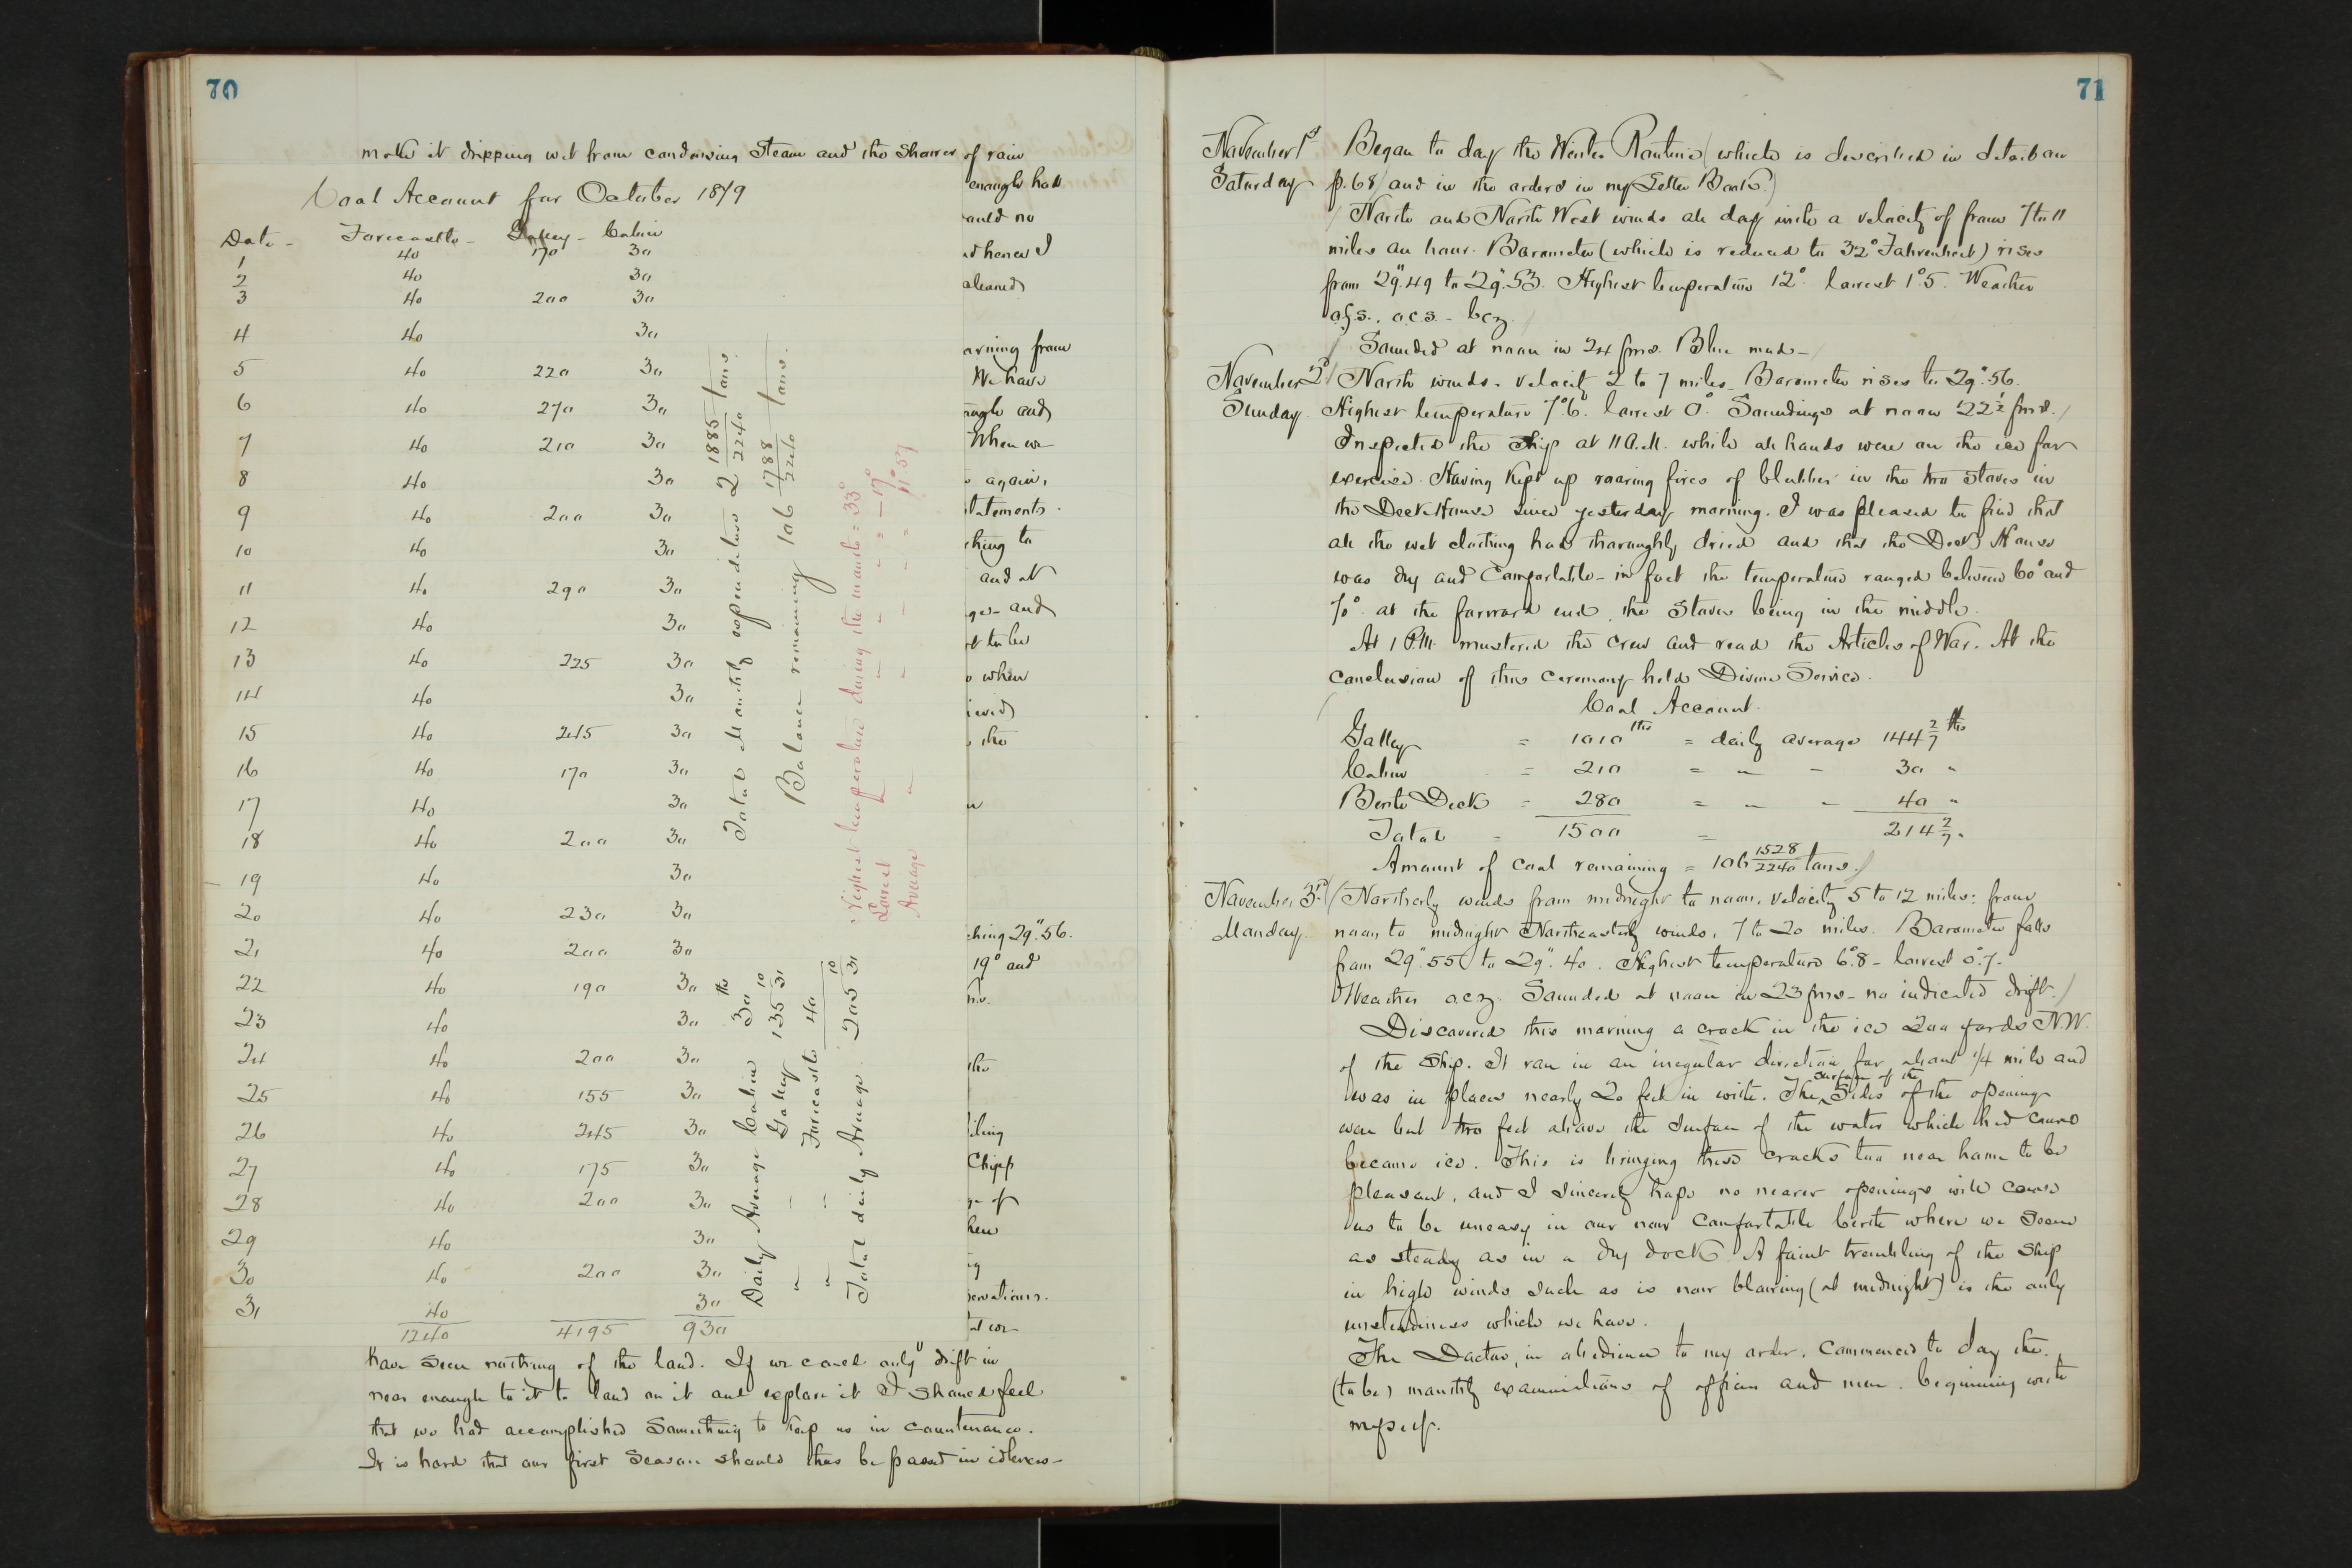 70
make it dripping wet from condensing steam and the shower of rain
Coal Account for October 1879
Date - Forecastle - Galley - Cabin
1 40 170 30
2 40 30
3 40 200 30
4 40 30
5 40 220 30
6 40 270 30
7 40 210 30
8 40 30
9 40 200 30
10 40 30
11 40 290 30
12 40 30
13 40 225 30
14 40 30
15 40 245 30
16 40 170 30
17 40 30
18 40 200 30
19 40 30
20 40 230 30
21 40 200 30
22 40 190 30
23 40 30
24 40 200 30
25 40 155 30
26 40 245 30
27 40 175 30
28 40 200 30
29 40 30
30 40 200 30
31 40 30
1240 4195 930
Total Monthly expenditure 2 1885/2240 tons.
Balance remaining 106 1788/2240 tons.
Highest temperature during the month = 33°
Lowest " " " " = -17°
Average " " " " = 11°.59
Daily Average Cabin 30 lbs
" " Galley 135 10/31
" " Forecastle 40
Total daily Average 205 10/31
enough had
ould no
d hence I
cleaned
orning from
We have
ough and
When we
again,
statements.
ching to
and at
ges - and
t to be
when
ieved
the
ching 29".56.
19° and
the
iling
Chipp
ge of
hen
servations.
have seen nothing of the land. If we could only drift in
near enough to it to land on it and explore it I should feel
that we had accomplished something to keep us in countenance.
It is hard that our first season should thus be passed in idleness -
71
November 1st Began to day the Winter Routine (which is described in detail on
Saturday p. 68 and in the orders in my Letter Book.)
North and North West winds all day with a velocity of from 7 to 11
miles an hour. Barometer (which is reduced to 32° Fahrenheit) rises
from 29".49 to 29".53. Highest temperature 12° lowest 1°.5. Weather
o.f.s., o.c.s. - b.c.z.
Sounded at noon in 24 fms. Blue mud -
November 2d North winds. velocity 2 to 7 miles. Barometer rises to 29".56.
Sunday Highest temperature 7°.6. lowest 0°. Soundings at noon 22½ fms.
Inspected the Ship at 11 A.M. while all hands were on the ice for
exercise. Having kept up roaring fires of blubber in the two stoves in
the Deck House since yesterday morning. I was pleased to find that
all the wet clothing had thoroughly dried and that the Deck House
was dry and comfortable - in fact the temperature ranged between 60° and
70° at the forward end, the stoves being in the middle.
At 1 P.M. mustered the crew and read the Articles of War. At the
conclusion of this ceremony held Divine Service.
Coal Account.
Galley = 1010 lbs = daily average 144 2/7 lbs
Cabin = 210 = " - 30 "
Berth Deck = 280 = " - 40 "
Total = 1500 = 214 2/7 "
Amount of coal remaining = 106 1528/2240 tons.
November 3rd Northerly winds from midnight to noon, velocity 5 to 12 miles: from
Monday. noon to midnight Northeasterly winds, 7 to 20 miles. Barometer falls
from 29".55 to 29".40. Highest temperature 6°.8 - lowest 0°.7 -
Weather o.c.z. Sounded at noon in 23 fms - no indicated drift.
Discovered this morning a crack in the ice 200 yards N.W.
of the Ship. It ran in an irregular direction for about 1/4 mile and
was in places nearly 20 feet in width. The surface of the Sides of the opening
were but two feet above the surface of the water which had
become ice. This is bringing these cracks too near home to be
pleasant, and I sincerely hope no nearer openings will cause
us to be uneasy in our now comfortable berth where we seem
as steady as in a dry dock. A faint trembling of the ship
in high winds such as is now blowing (at midnight) is the only
unsteadiness which we have.
The Doctor, in obedience to my order, commenced to day the
(to be) monthly examinations of officers and men. beginning with
myself.